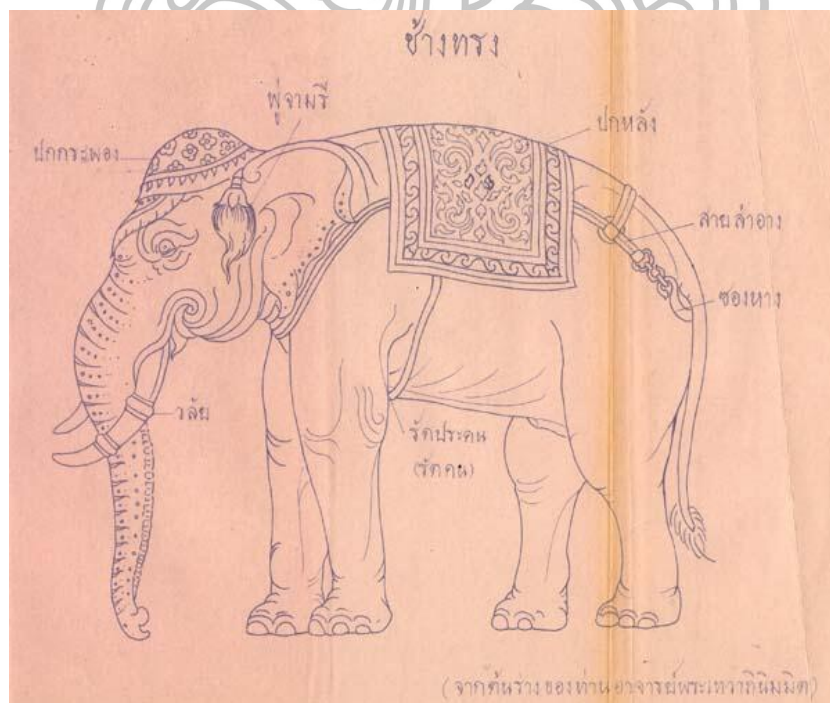 ช้างทรง
พู่จามรี
ปกหลัง
ปกกระพอง
สายสำอาง
ซองหาง
วลัย
รัดประคน
(รัดคน)
(จากต้นร่างของท่านอาจารย์พระเทวาภินิมมิต)